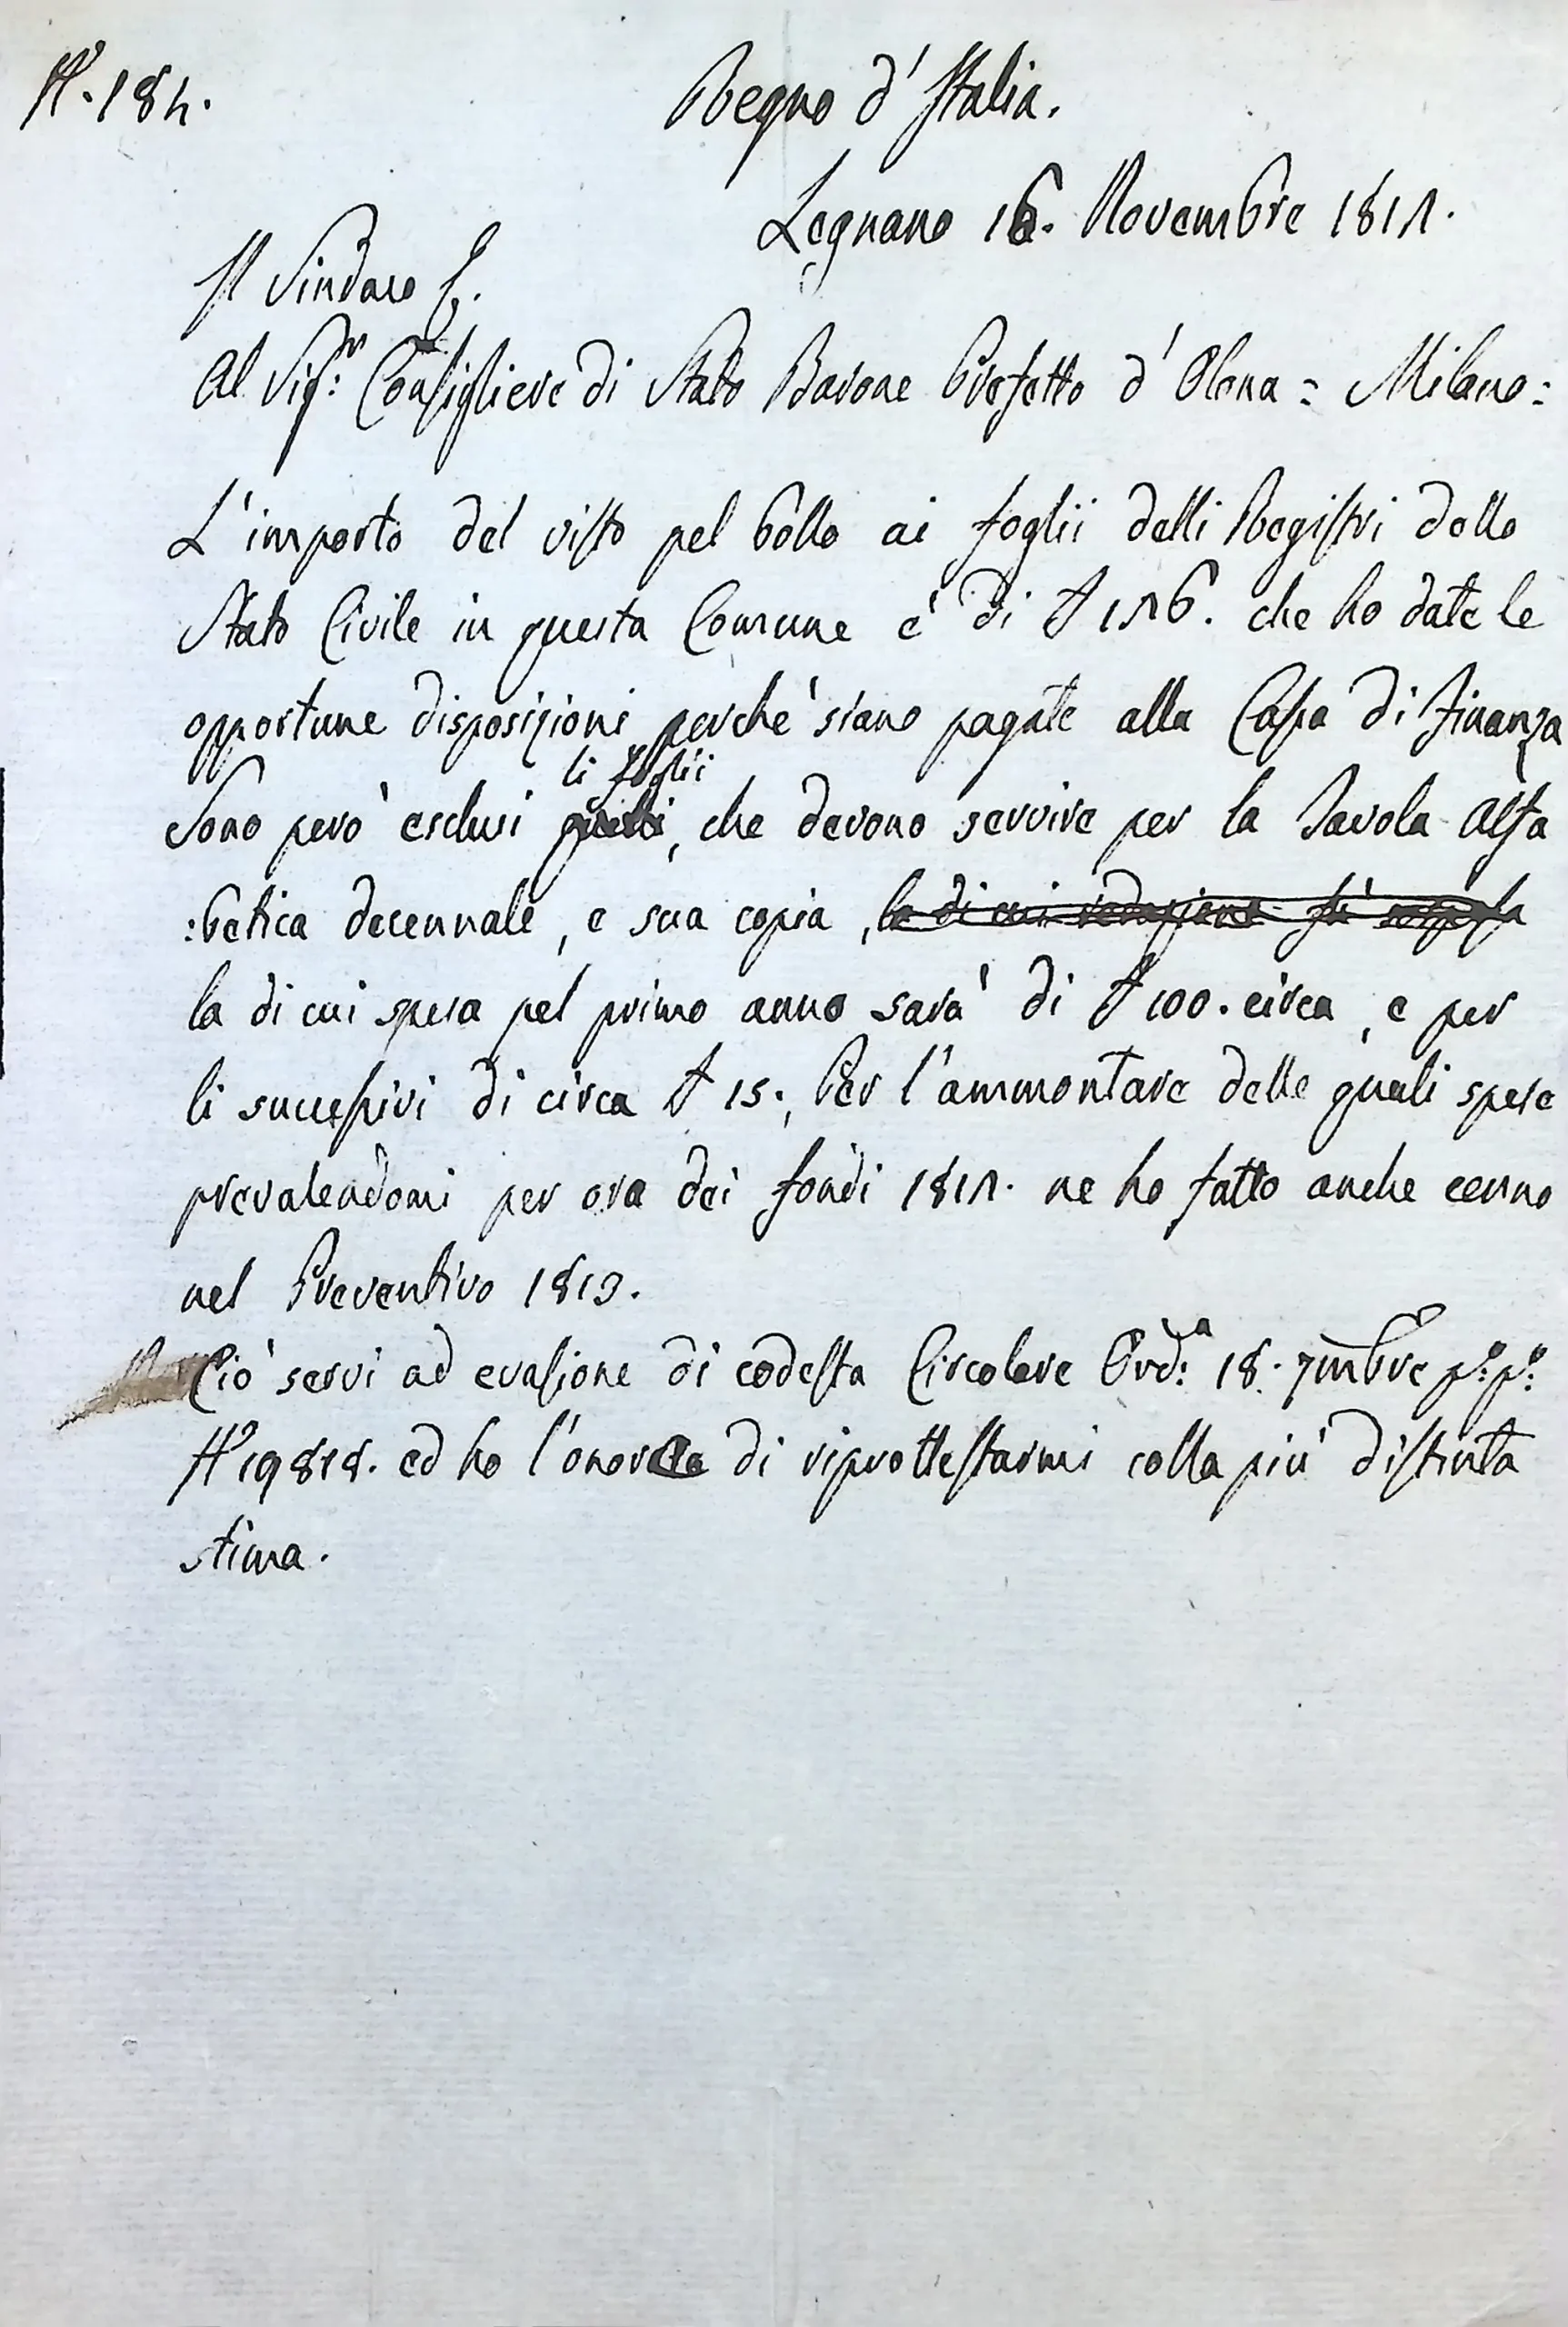 N°. 184.
Regno d'Italia.
Legnano 16. Novembre 1812.
Il Sindaco
Al Sig.r Consigliere di Stato Barone Prefetto d'Olona = Milano =
L'importo del visto pel bollo ai foglii delli Registri dello
Stato Civile in questa Comune è di £ 126. che ho date le
opportune disposizioni perchè siano pagate alla Cassa di Finanza
li foglii
Sono però esclusi quelli, che devono servire per la Tavola Alfa
:betica decennale, e sua copia, la di cui redazione fù
la di cui spesa pel primo anno sarà di £ 100. circa, e per
li successivi di circa £ 15., Per l'ammontare delle quali spese
prevalendomi per ora dei fondi 1812. ne ho fatto anche cenno
nel Preventivo 1813.
Ciò servi ad evasione di codesta Circolare Ord:a 18. 7mbre p:o p:o
N° 19818. ed ho l'onore di riprottestarmi colla più distinta
stima.